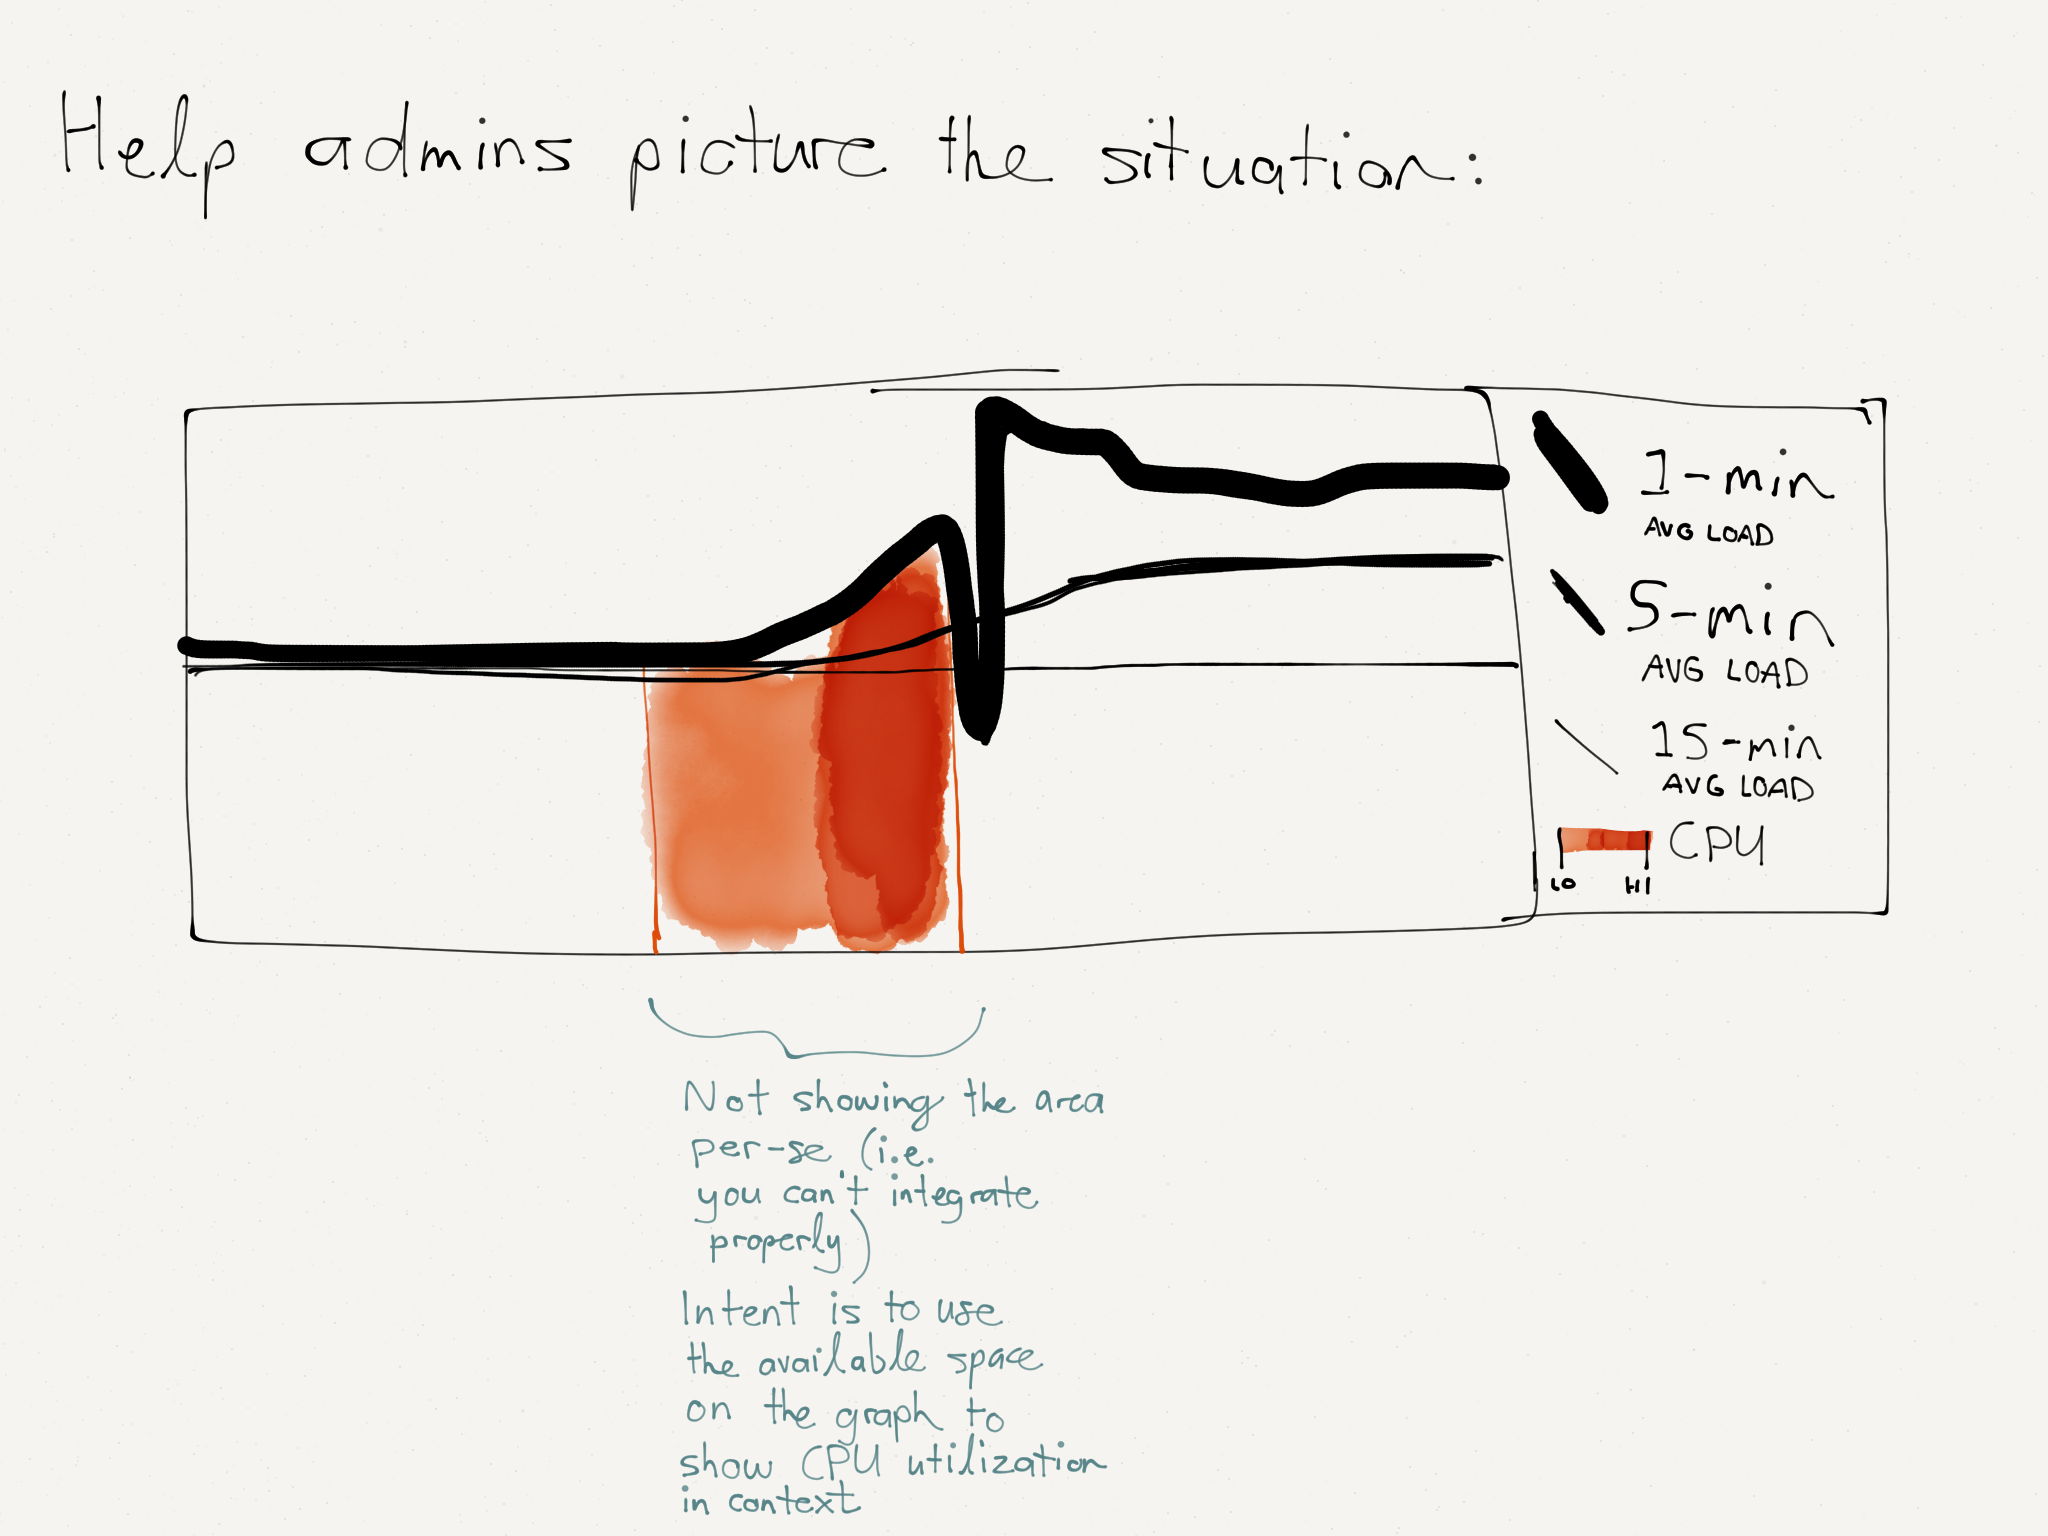 Help admins picture the situation:
1-min
AVG LOAD
5-min
AVG LOAD
15-min
AVG LOAD
CPU
LO HI
Not showing the area
per-se (i.e.
you can't integrate
properly)
Intent is to use
the available space
on the graph to
show CPU utilization
in context